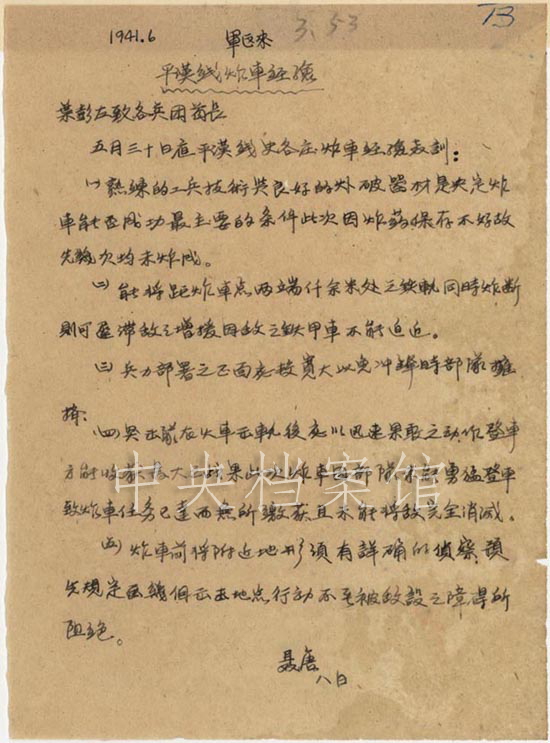 1941.6 軍区來 3.53 73
平漢线炸車经验
葉彭左致各兵团首長
五月三十日在平漢线史各庄炸車经验教訓：
(一)熟練的工兵技術與良好的炸破器材是决定炸
車能否成功最主要的条件此次因炸葯保存不好故
先幾次均未炸成。
(二)能将距炸車点两端仟余米处之鉄軌同時炸断
則可遲滞敌之增援因敌之鉄甲車不能迫近。
(三)兵力部署之正面应较寬大以免冲鋒時部隊擁
擠；
(四)突击隊在火車出軌後应以迅速果敢之动作登車
方能收获 大 战果此次炸車因部隊未能勇猛登車
致炸車任务已達而無所繳获且不能将敌完全消滅。
(五)炸車前将附近地形須有詳确的偵察預
先規定 幾個出击地点行动不至被敌設之障碍所
阻绝。
聂唐
八日
中央档案馆